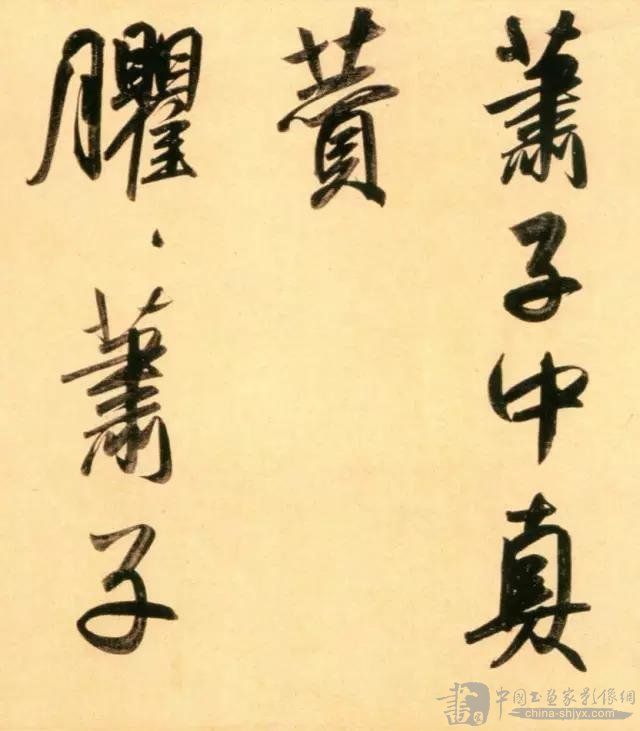 蕭子中真
賛
臞、蕭子
中国书画家影像網
china-shjyx.com